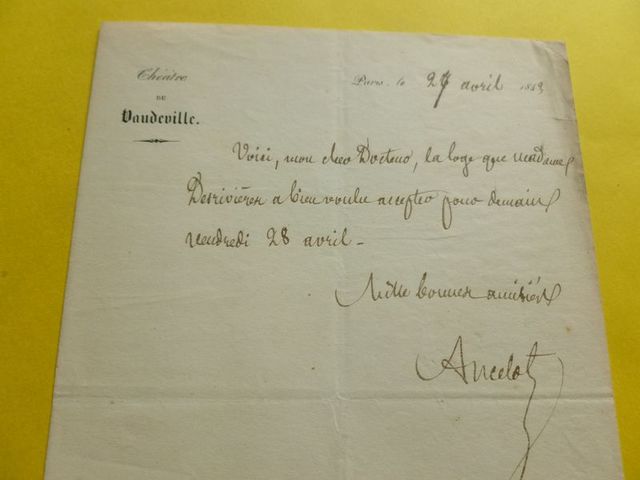 Théâtre
DU
Vaudeville.
Paris, le 27 avril 1843
Voici, mon cher Docteur, la loge que Madame
Desrivières a bien voulu accepter pour demain
vendredi 28 avril -
Mille bonnes amitiés
Ancelot